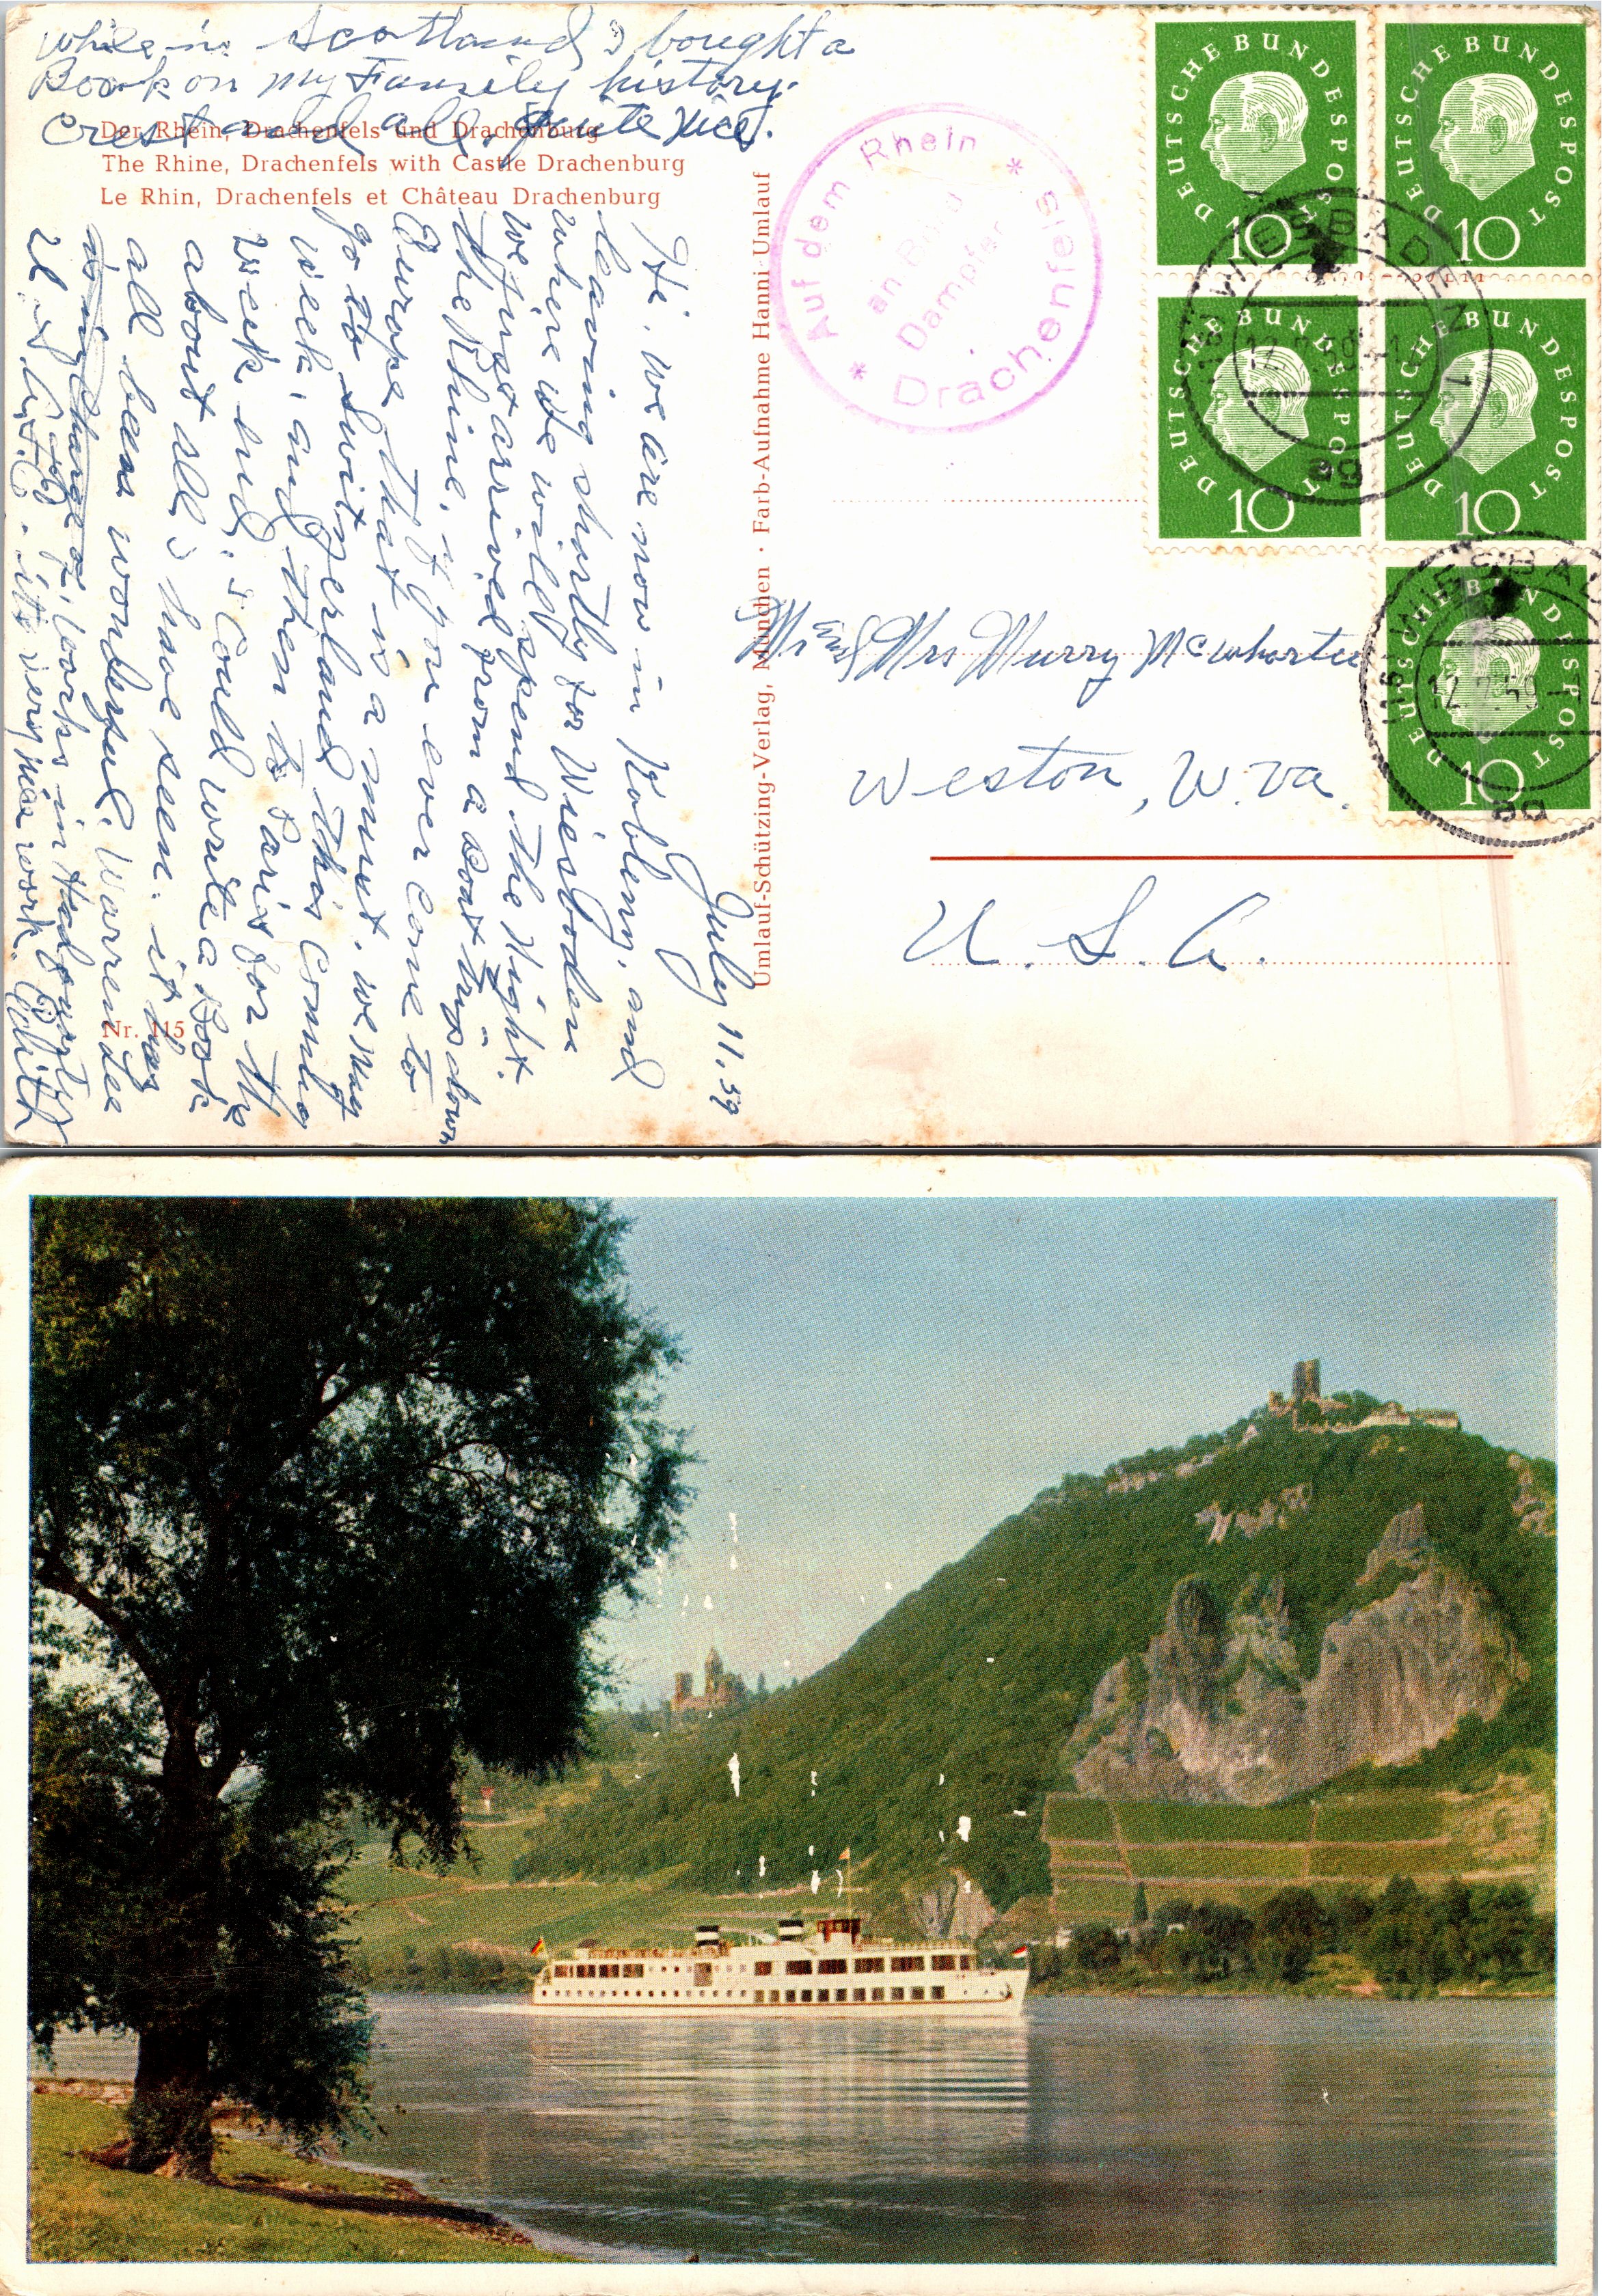 while in Scotland I bought a
Book on my Family history.
crest and all, quite nice.
Der Rhein, Drachenfels und Drachenburg
The Rhine, Drachenfels with Castle Drachenburg
Le Rhin, Drachenfels et Château Drachenburg
July 11, 59
Hi, we are now in Koblenz, and
leaving shortly for Wiesboden
where we will spend the Night.
we just arrived from a boat trip down
the Rhine, if you ever come to
Europe that is a must. we may
go to Switzerland this coming
week, and then to Paris for the
week end. I could write a Book
about all I have seen. it has
all been wonderful. Warren Lee
is in charge of works in Headquarters
is very nice work. Edith
Nr. 115
Umlauf-Schützing-Verlag, München · Farb-Aufnahme Hanni Umlauf
Auf dem Rhein * Bielefeld
an Bord
Dampfer
* Drachenfels
DEUTSCHE BUNDESPOST
10
DEUTSCHE BUNDESPOST
10
DEUTSCHE BUNDESPOST
10
DEUTSCHE BUNDESPOST
10
DEUTSCHE BUNDESPOST
10
WIESBADEN 1
ag
WIESBAD
12.7.59
ag
Mr and Mrs Murry McWhorter
Weston, W. Va.
U. S. A.